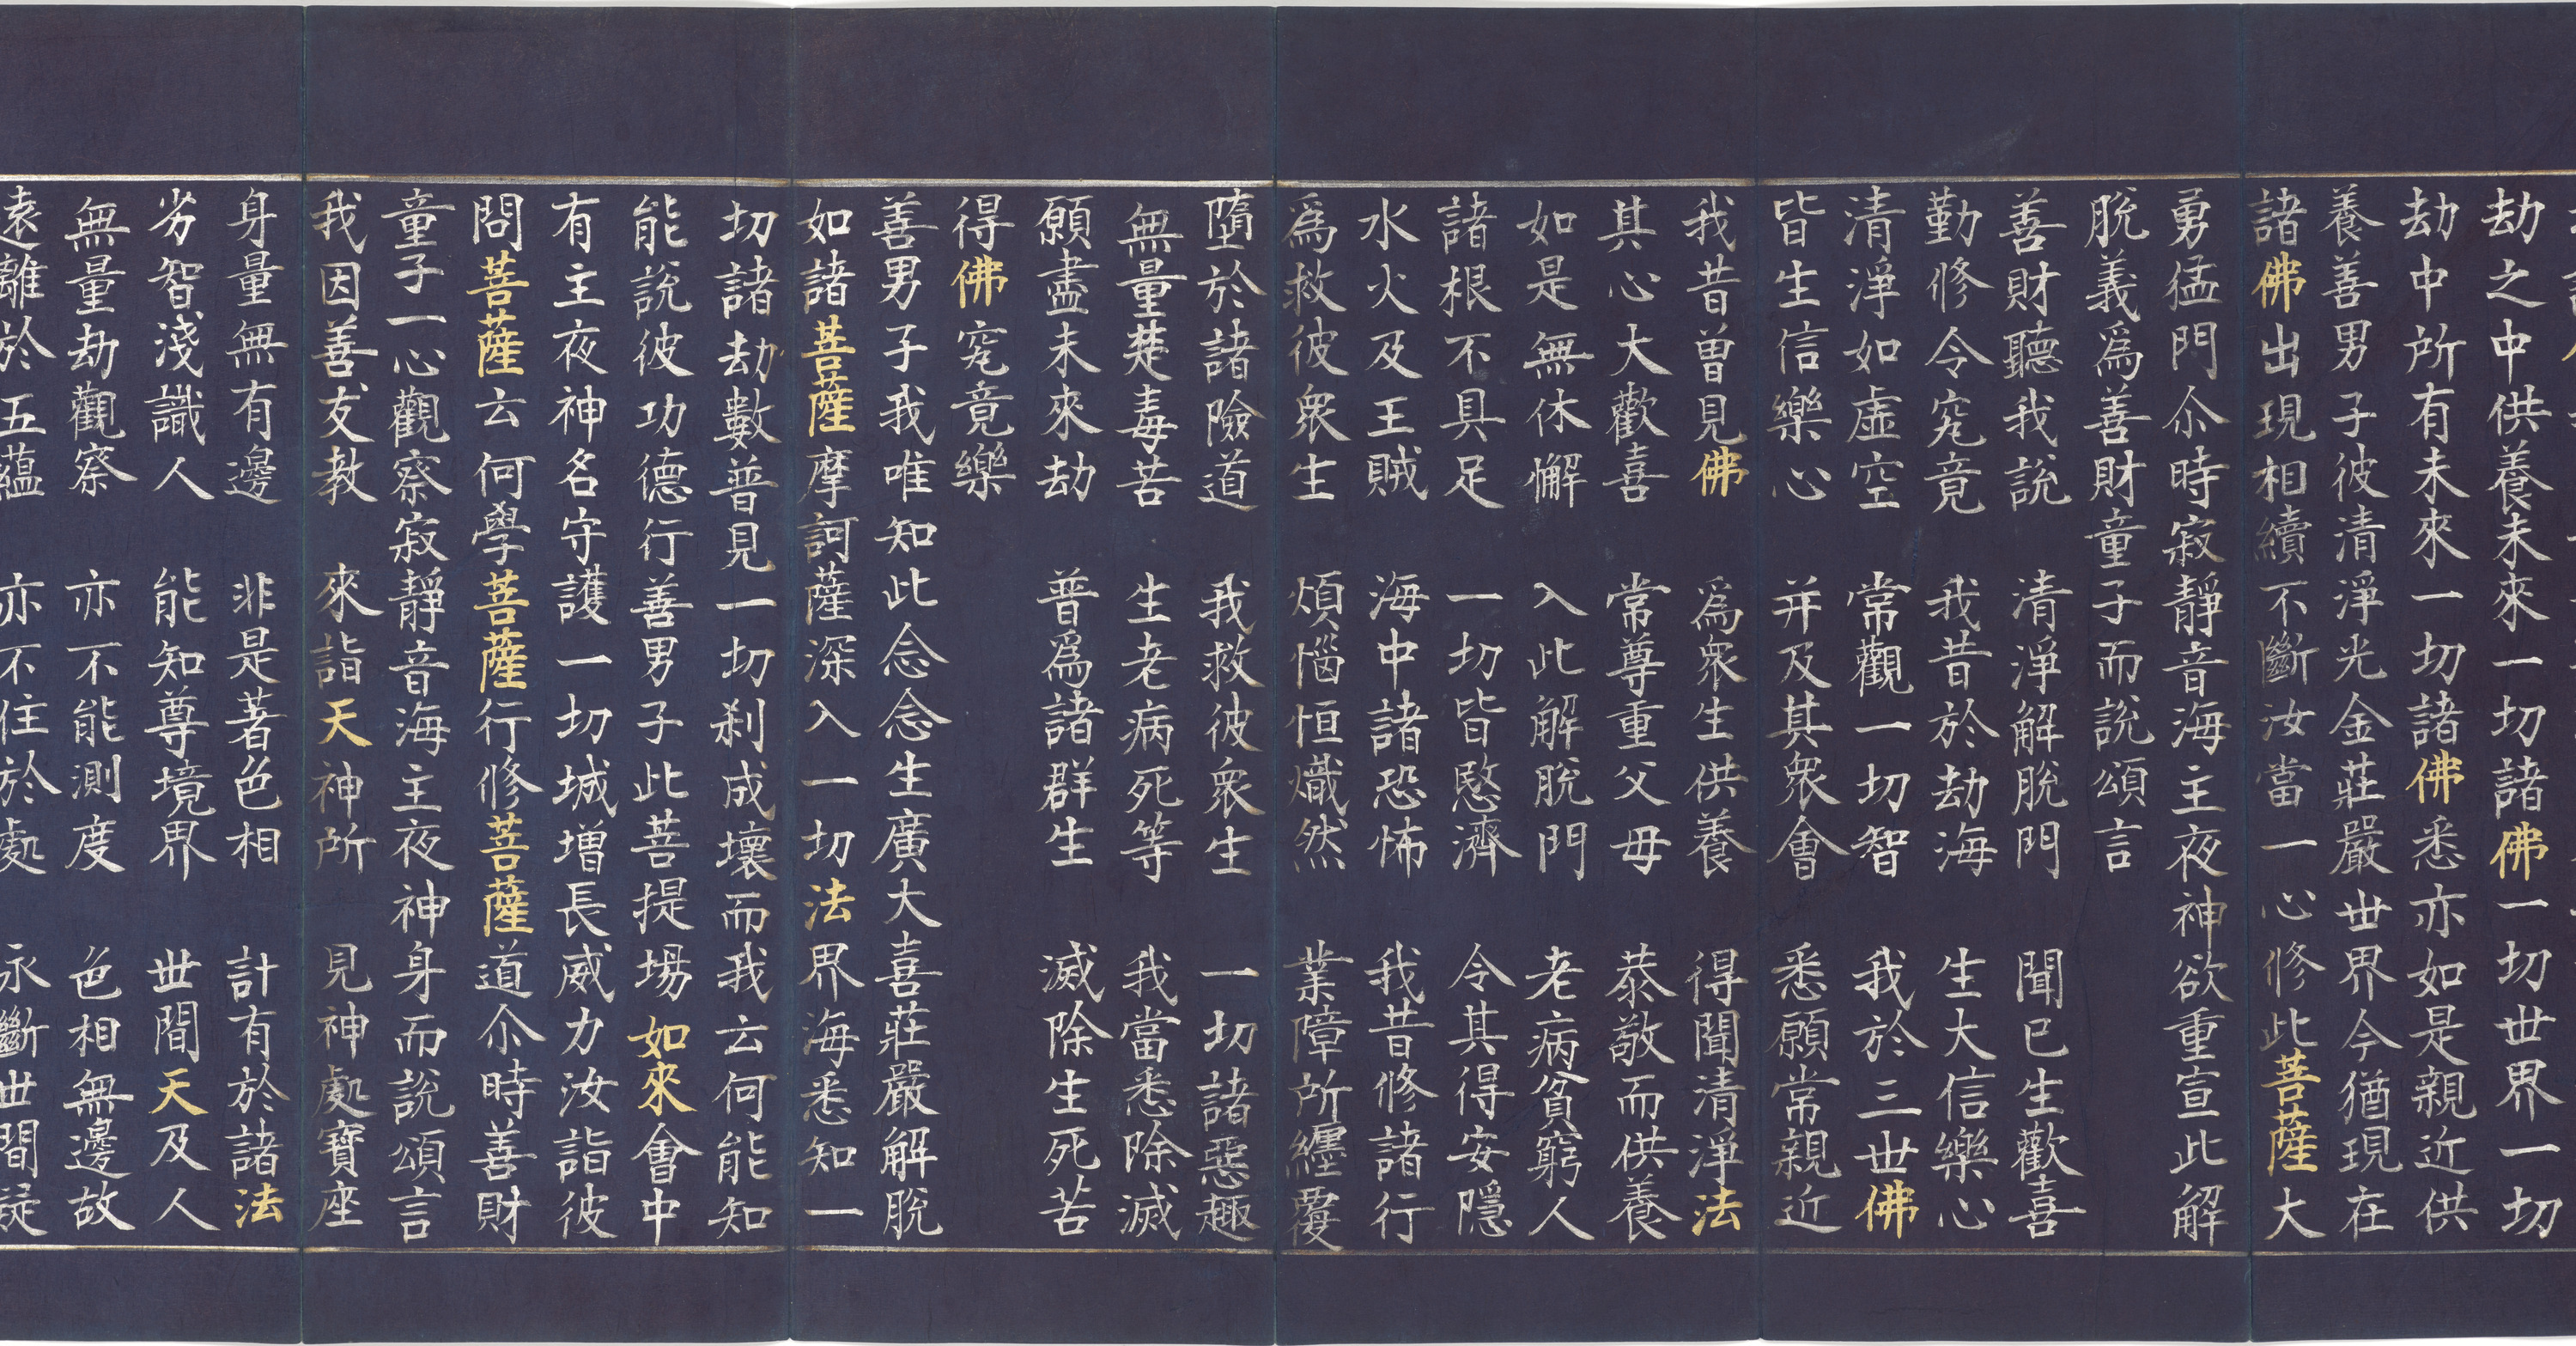 劫之中供養未來一切諸佛一切世界一切
劫中所有未來一切諸佛悉亦如是親近供
養善男子彼清淨光金莊嚴世界今猶現在
諸佛出現相續不斷汝當一心修此菩薩大
勇猛門尒時寂靜音海主夜神欲重宣此解
脫義爲善財童子而說頌言
善財聽我說　清淨解脫門　聞已生歡喜
勤修令究竟　我昔於劫海　生大信樂心
清淨如虛空　常觀一切智　我於三世佛
皆生信樂心　并及其衆會　悉願常親近
我昔曾見佛　爲衆生供養　得聞清淨法
其心大歡喜　常尊重父母　恭敬而供養
如是無休懈　入此解脫門　老病貧窮人
諸根不具足　一切皆愍濟　令其得安隱
水火及王賊　海中諸恐怖　我昔修諸行
爲救彼衆生　煩惱恒熾然　業障所纏覆
墮於諸險道　我救彼衆生　一切諸惡趣
無量楚毒苦　生老病死等　我當悉除滅
願盡未來劫　普爲諸群生　滅除生死苦
得佛究竟樂
善男子我唯知此念念生廣大喜莊嚴解脫
如諸菩薩摩訶薩深入一切法界海悉知一
切諸劫數普見一切刹成壞而我云何能知
能說彼功德行善男子此菩提場如來會中
有主夜神名守護一切城增長威力汝詣彼
問菩薩云何學菩薩行修菩薩道尒時善財
童子一心觀察寂靜音海主夜神身而說頌言
我因善友教　來詣天神所　見神處寶座
身量無有邊　非是著色相　計有於諸法
劣智淺識人　能知尊境界　世間天及人
無量劫觀察　亦不能測度　色相無邊故
遠離於五蘊　亦不住於處　永斷世間疑